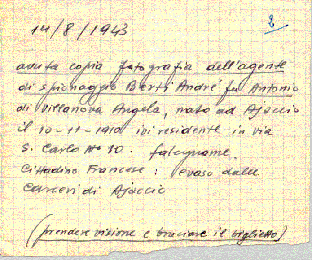 14/8/1943
2
avuta copia fotografia dell'agente
di spionaggio Berti André fu Antonio
di Villanova Angela, nato ad Ajaccio
il 10-11-1910 ivi residente in via
S. Carlo N° 10. falegname.
Cittadino Francese: evaso dalle
Carceri di Ajaccio
(prendere visione e bruciare il biglietto)